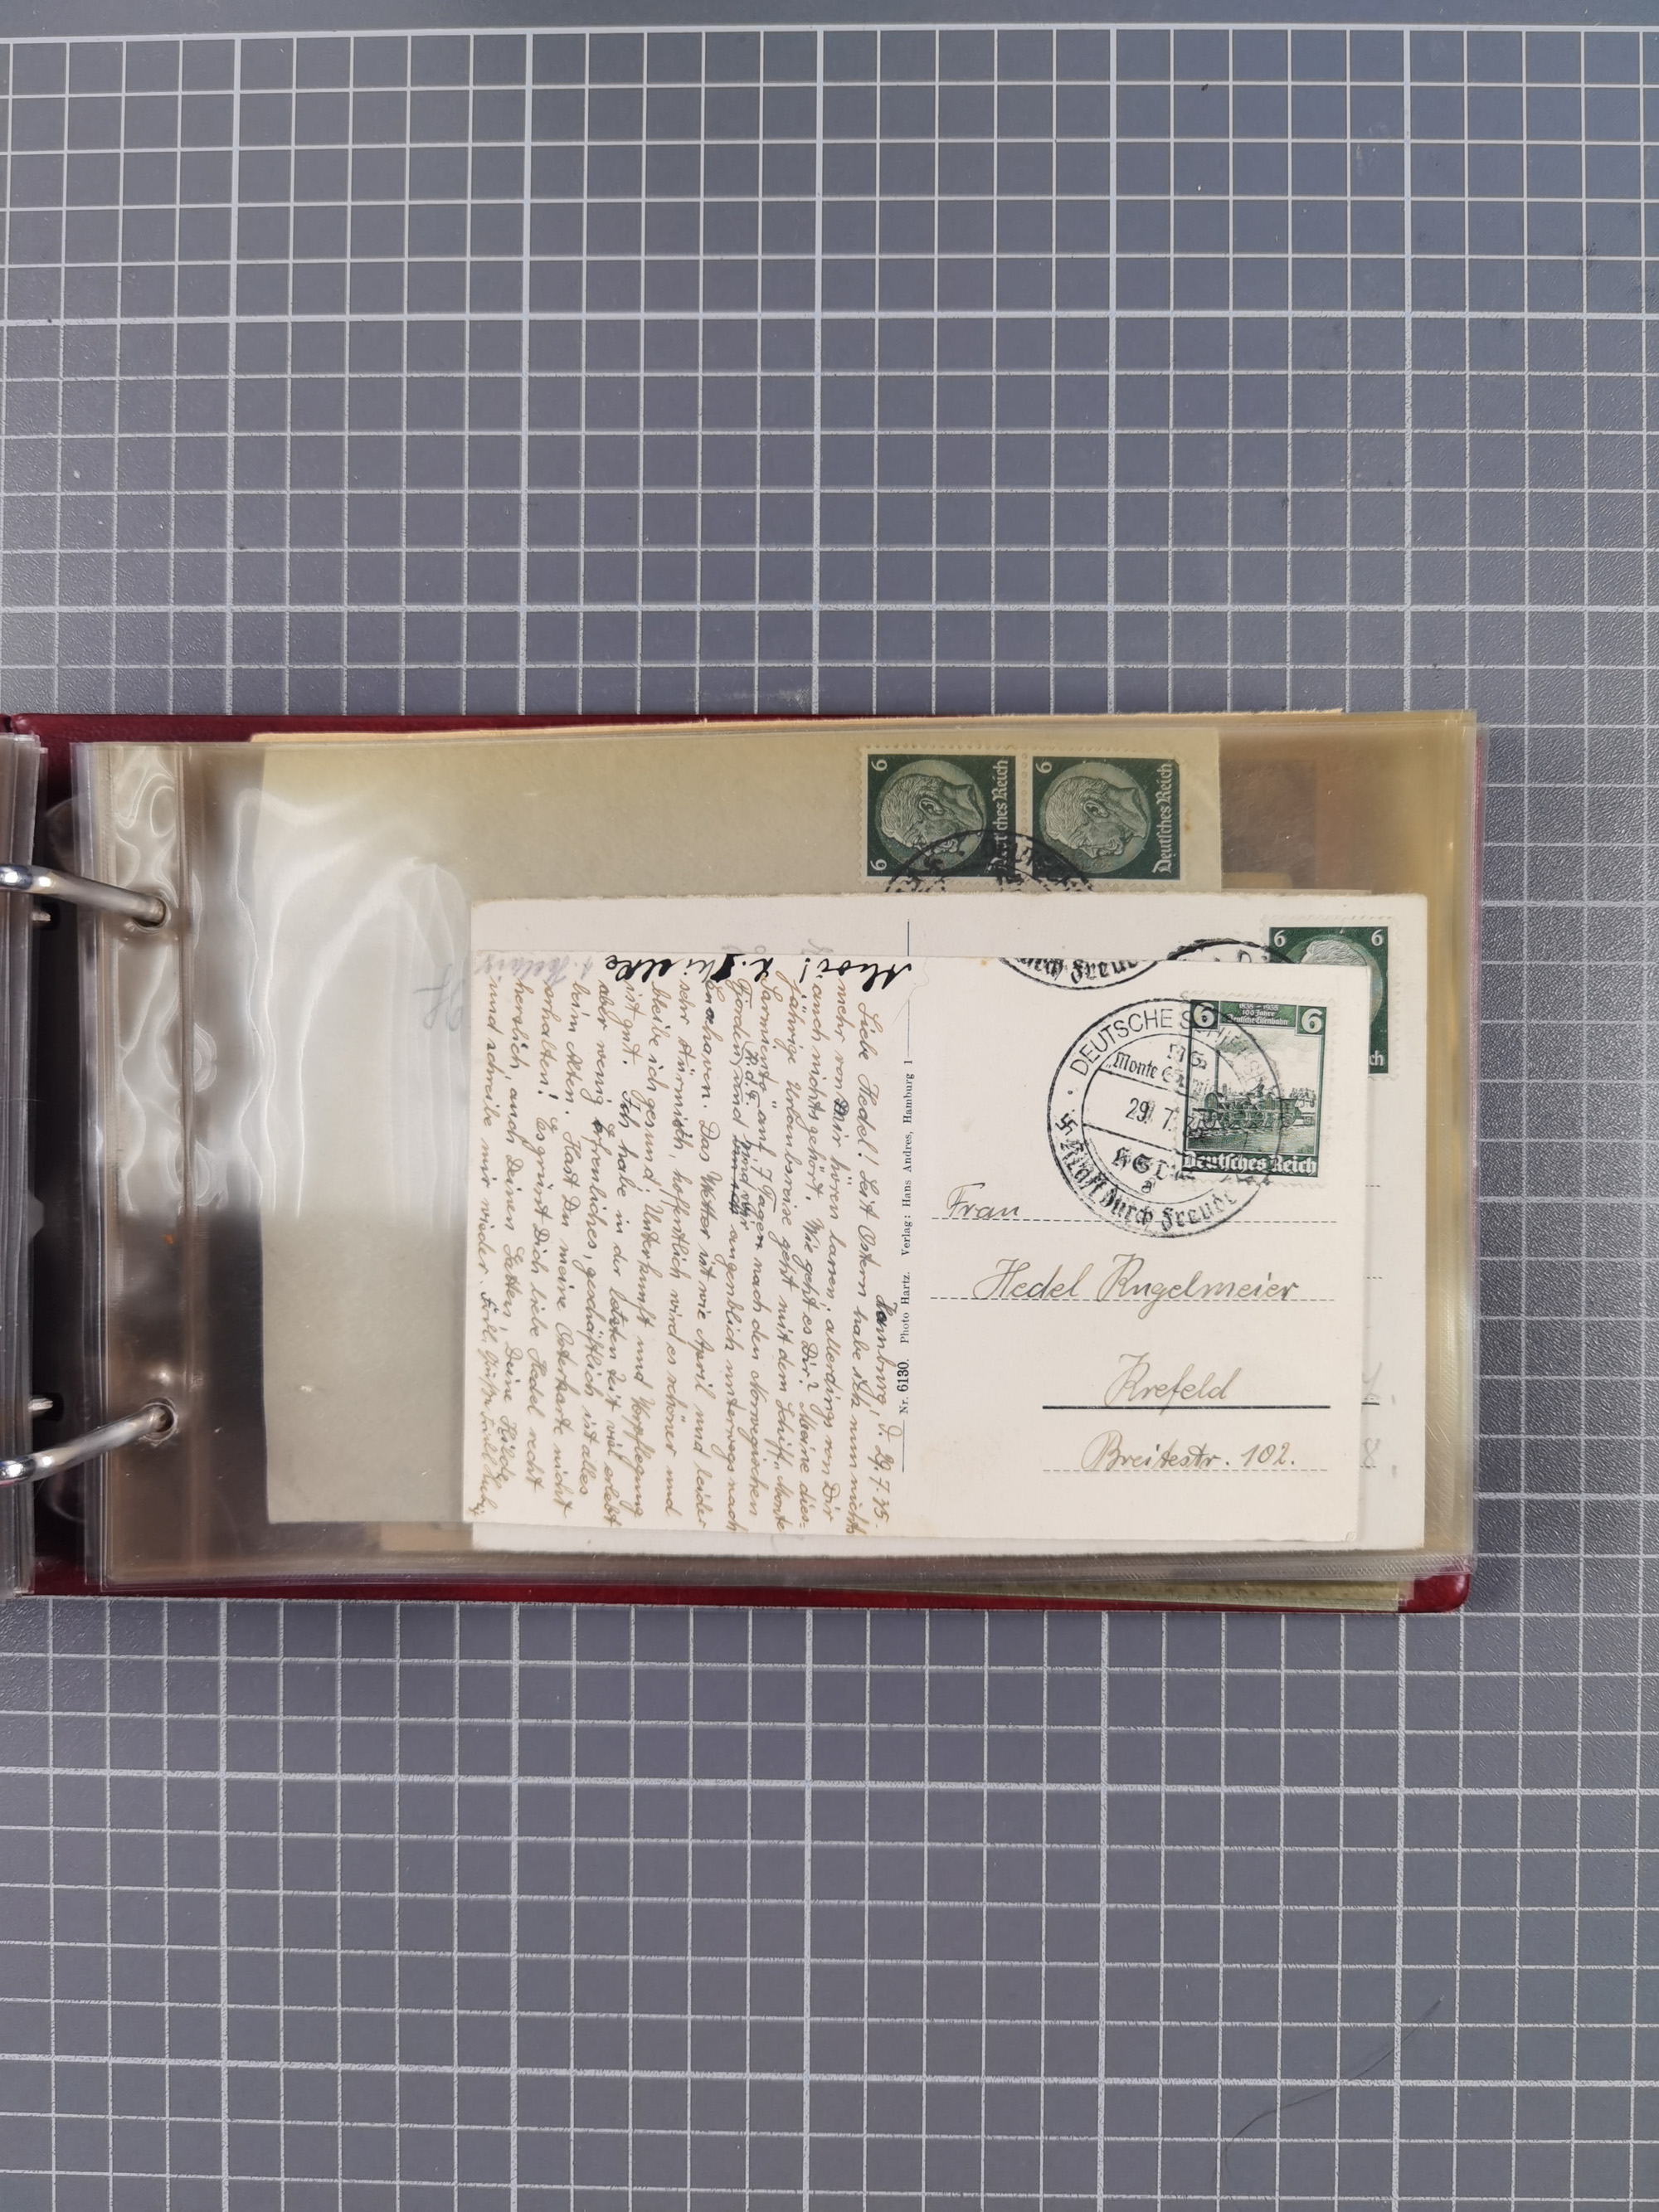 6
6
Deutsches Reich
6
Deutsches Reich
6 6
ch
durch Freude
6 6
1835-1935
100 Jahre
Deutsche Eisenbahn
Deutsches Reich
DEUTSCHE
M.S.
"Monte
29. 7.
Kraft durch Freude
Frau
Hedel Kugelmeier
Krefeld
Breitestr. 102.
Nr. 6130. Photo Hartz. Verlag: Hans Andres, Hamburg 1
Hamburg, d. 29.7.35.
Liebe Hedel! Seit Ostern habe ich nun nichts
mehr von Dir hören lassen, allerdings von Dir
auch nichts gehört. Wie geht es Dir? Meine dies-
jährige Urlaubsreise geht mit dem Schiff "Monte
Sarmiento" auf 7 Tagen nach den Norwegischen
K.d.F.
Fjorden, und sind wir augenblich unterwegs nach
haven. Das Wetter ist wie April und leider
sehr stürmisch, hoffentlich wird es schöner und
bleibe ich gesund. Unterkunft und Verpflegung
ist gut. Ich habe in der letzten Zeit viel erlebt
aber wenig erfreuliches, geschäftlich ist alles
beim Alten. Hast Du meine Osterkarte nicht
erhalten! Es grüsst Dich liebe Hedel recht
herzlich, auch Deinen Gatten, Deine
und schreibe mir wieder.
Ahoi!